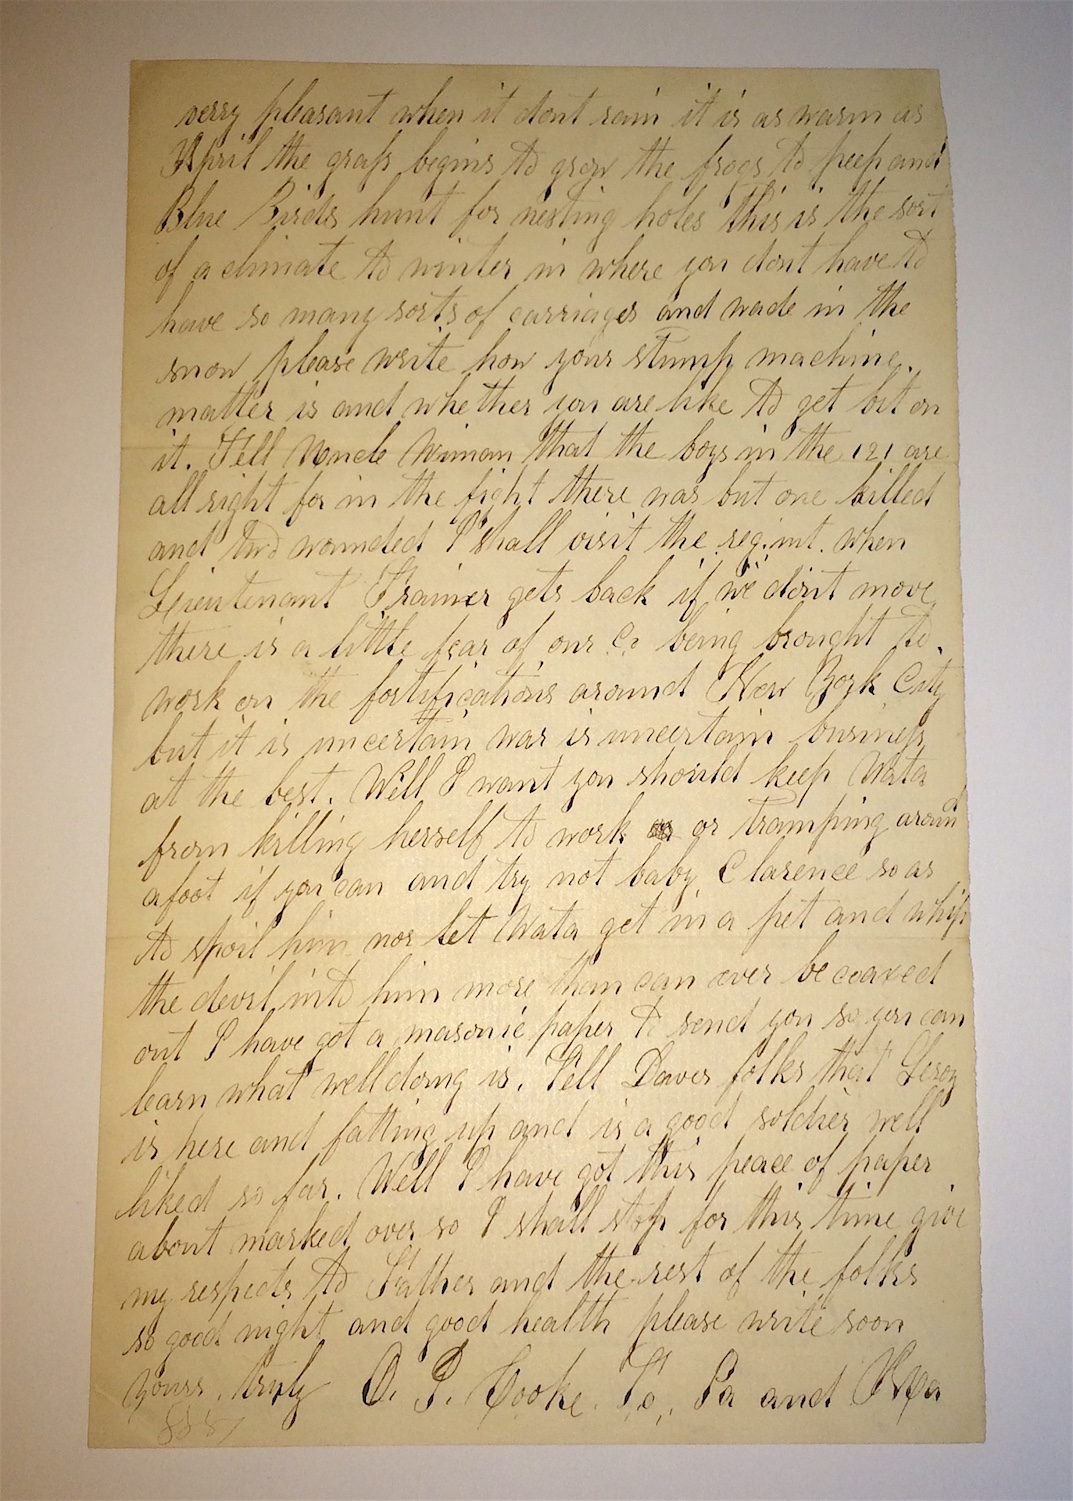 verry pleasant when it dont rain it is as warm as
April the grass begins to grow the frogs to peep and
Blue Birds hunt for nesting holes this is the sort
of a climate to winter in where you dont have to
have so many sorts of carriages and wade in the
snow please write how your stump machine.
matter is and whether you are like to get bit on
it. Tell Uncle Wiman that the boys in the 121 are
all right for in the fight there was but one killed
and two wounded I shall visit the regimt. when
Lieutenant Trainer gets back if we don't move
there is a little fear of our Co being brought to
work on the fortifications around New York City
but it is uncertain war is uncertain business
at the best. Well I want you should keep Wata
from killing herself to work or tramping around
afoot if you can and try not baby Clarence so as
to spoil him nor let Wata get in a pet and whip
the devil into him more than can ever be coaxed
out I have got a masonic paper to send you so you can
learn what well doing is. Tell Daves folks that Leroy
is here and fatting up and is a good soldier well
liked so far. Well I have got this peace of paper
about marked over so I shall stop for this time give
my respects to Father and the rest of the folks
so good night and good health please write soon
yours truly O. P. Cooke. To, Pa and